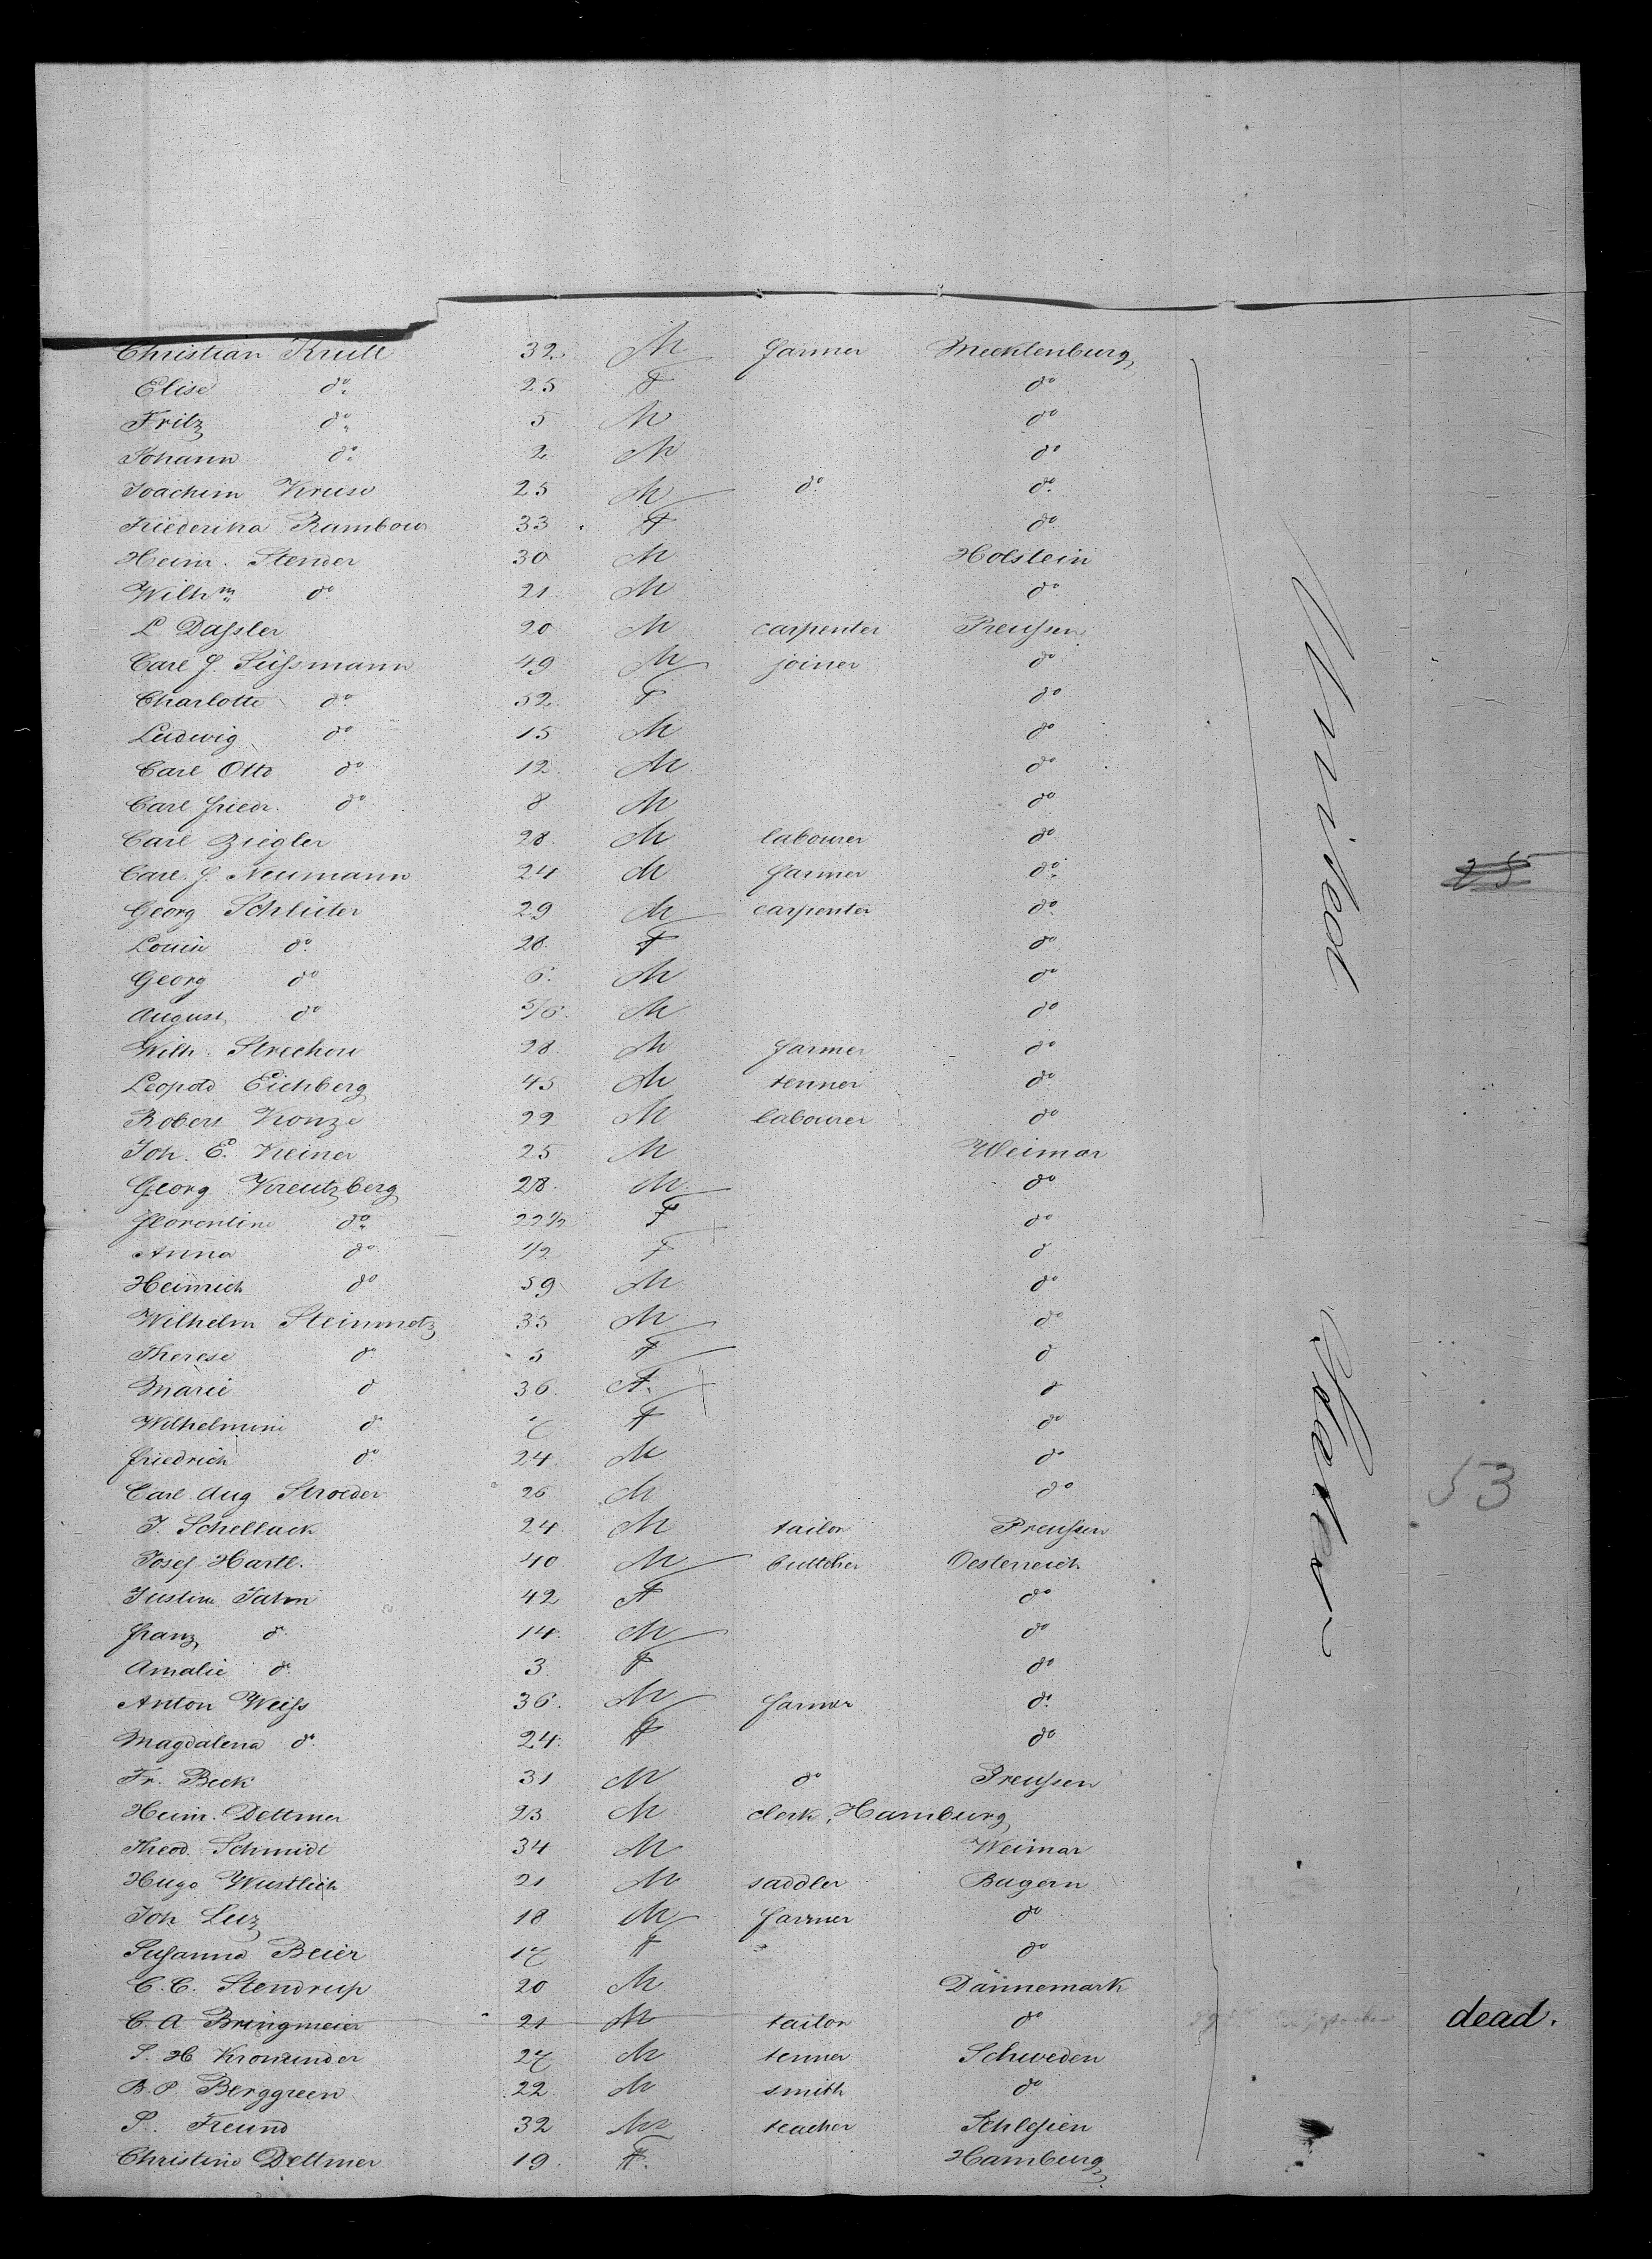 Christian Krull 32 M farmer Mecklenburg
Elise do 25 F do
Fritz do 5 M do
Johann do 2 M do
Joachim Kruse 25 M do do
Friederika Rambow 33 F do
Heinr. Stender 30 M Holstein
Wilhm do 21 M do
L Dassler 20 M carpenter Preussen
Carl F. Süssmann 49 M joiner do
Charlotte do 52 F do
Ludwig do 15 M do
Carl Otto do 12 M do
Carl Friedr. do 8 M do
Carl Ziegler 28 M labourer do
Carl F. Neumann 24 M farmer do
Georg Schlüter 29 M carpenter do
Louise do 28 F do
Georg do 6 M do
August do 5/6 M do
Wilh. Strechow 28 M farmer do
Leopold Eichberg 45 M tenner do
Robert Konze 22 M labourer do
Joh. E. Keiner 25 M Weimar
Georg Kreutzberg 28 M do
Florentine do 22 1/2 F do
Anna do 1/2 F do
Heinrich do 59 M do
Wilhelm Steinmetz 35 M do
Therese do 5 F do
Marie do 36 F. do
Wilhelmine do 7 F do
Friedrich do 24 M do
Carl Aug Stroeder 26 M do
J. Schellack 24 M tailor Preussen
Josef Hartl. 40 M buttcher Oesterreich
Justine Jahn 42 F do
Franz do 14 M do
Amalie do 3 F do
Anton Weiss 36 M farmer do
Magdalena do 24 F do
Fr. Beck 31 M do Preussen
Heinr. Dettmer 23 M clerk, Hamburg
Theod. Schmidt 34 M Weimar
Hugo Wustlich 21 M saddler Bayern
Joh Luz 18 M farmer do
Susanne Beier 17 F do
C. C. Stendrup 20 M Dännemark
C. A Bringmeier 21 M tailor do dead.
S. H Kronunder 27 M tenner Schweden
B. P. Berggreen 22 M smith do
S. Freund 32 M teacher Schlesien
Christine Dettmer 19 F. Hamburg
United States
25
53